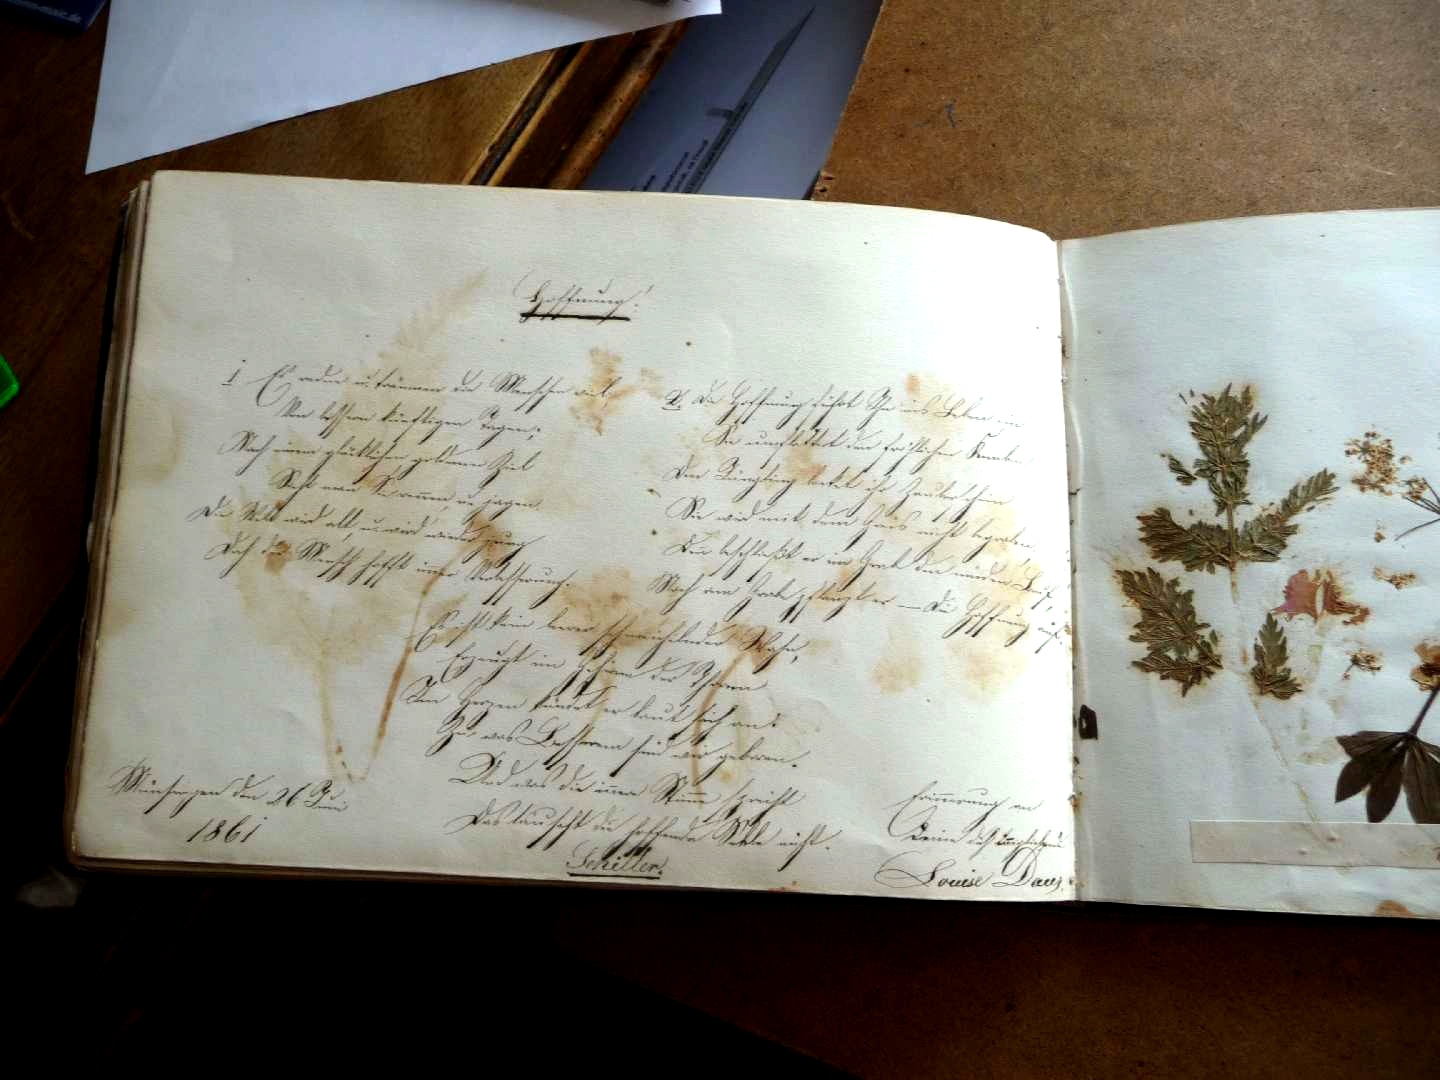 Hoffnung!
1 Es reden u. träumen die Menschen viel
Von bessern künftigen Tagen;
Nach einem glücklichen goldenen Ziel
Sieht man Sie rennen u. jagen.
Die Welt wird alt, u. wird wieder jung
Doch der Mensch hofft immer Verbesserung.
2. Die Hoffnung führt Ihn ins Leben ein
Sie umflattert den fröhlichen Knaben
Den Jüngling locket ihr Zauberschein
Sie wird mit dem Greis nicht begraben
Denn beschließt er im Grab den müden Lauf,
Noch am Grabe pflanzt er — die Hoffnung auf.
Es ist kein leerer schmeichelnder Wahn,
Erzeugt im Gehirne des Thoren
Im Herzen kündet es laut sich an:
Zu was Besserem sind wir geboren.
Und was die innere Stimme spricht
Das täuscht die hoffende Seele nicht.
Schiller.
Münsingen den 26 Juni
1861
Erinnerung an
Deine dich
Louise